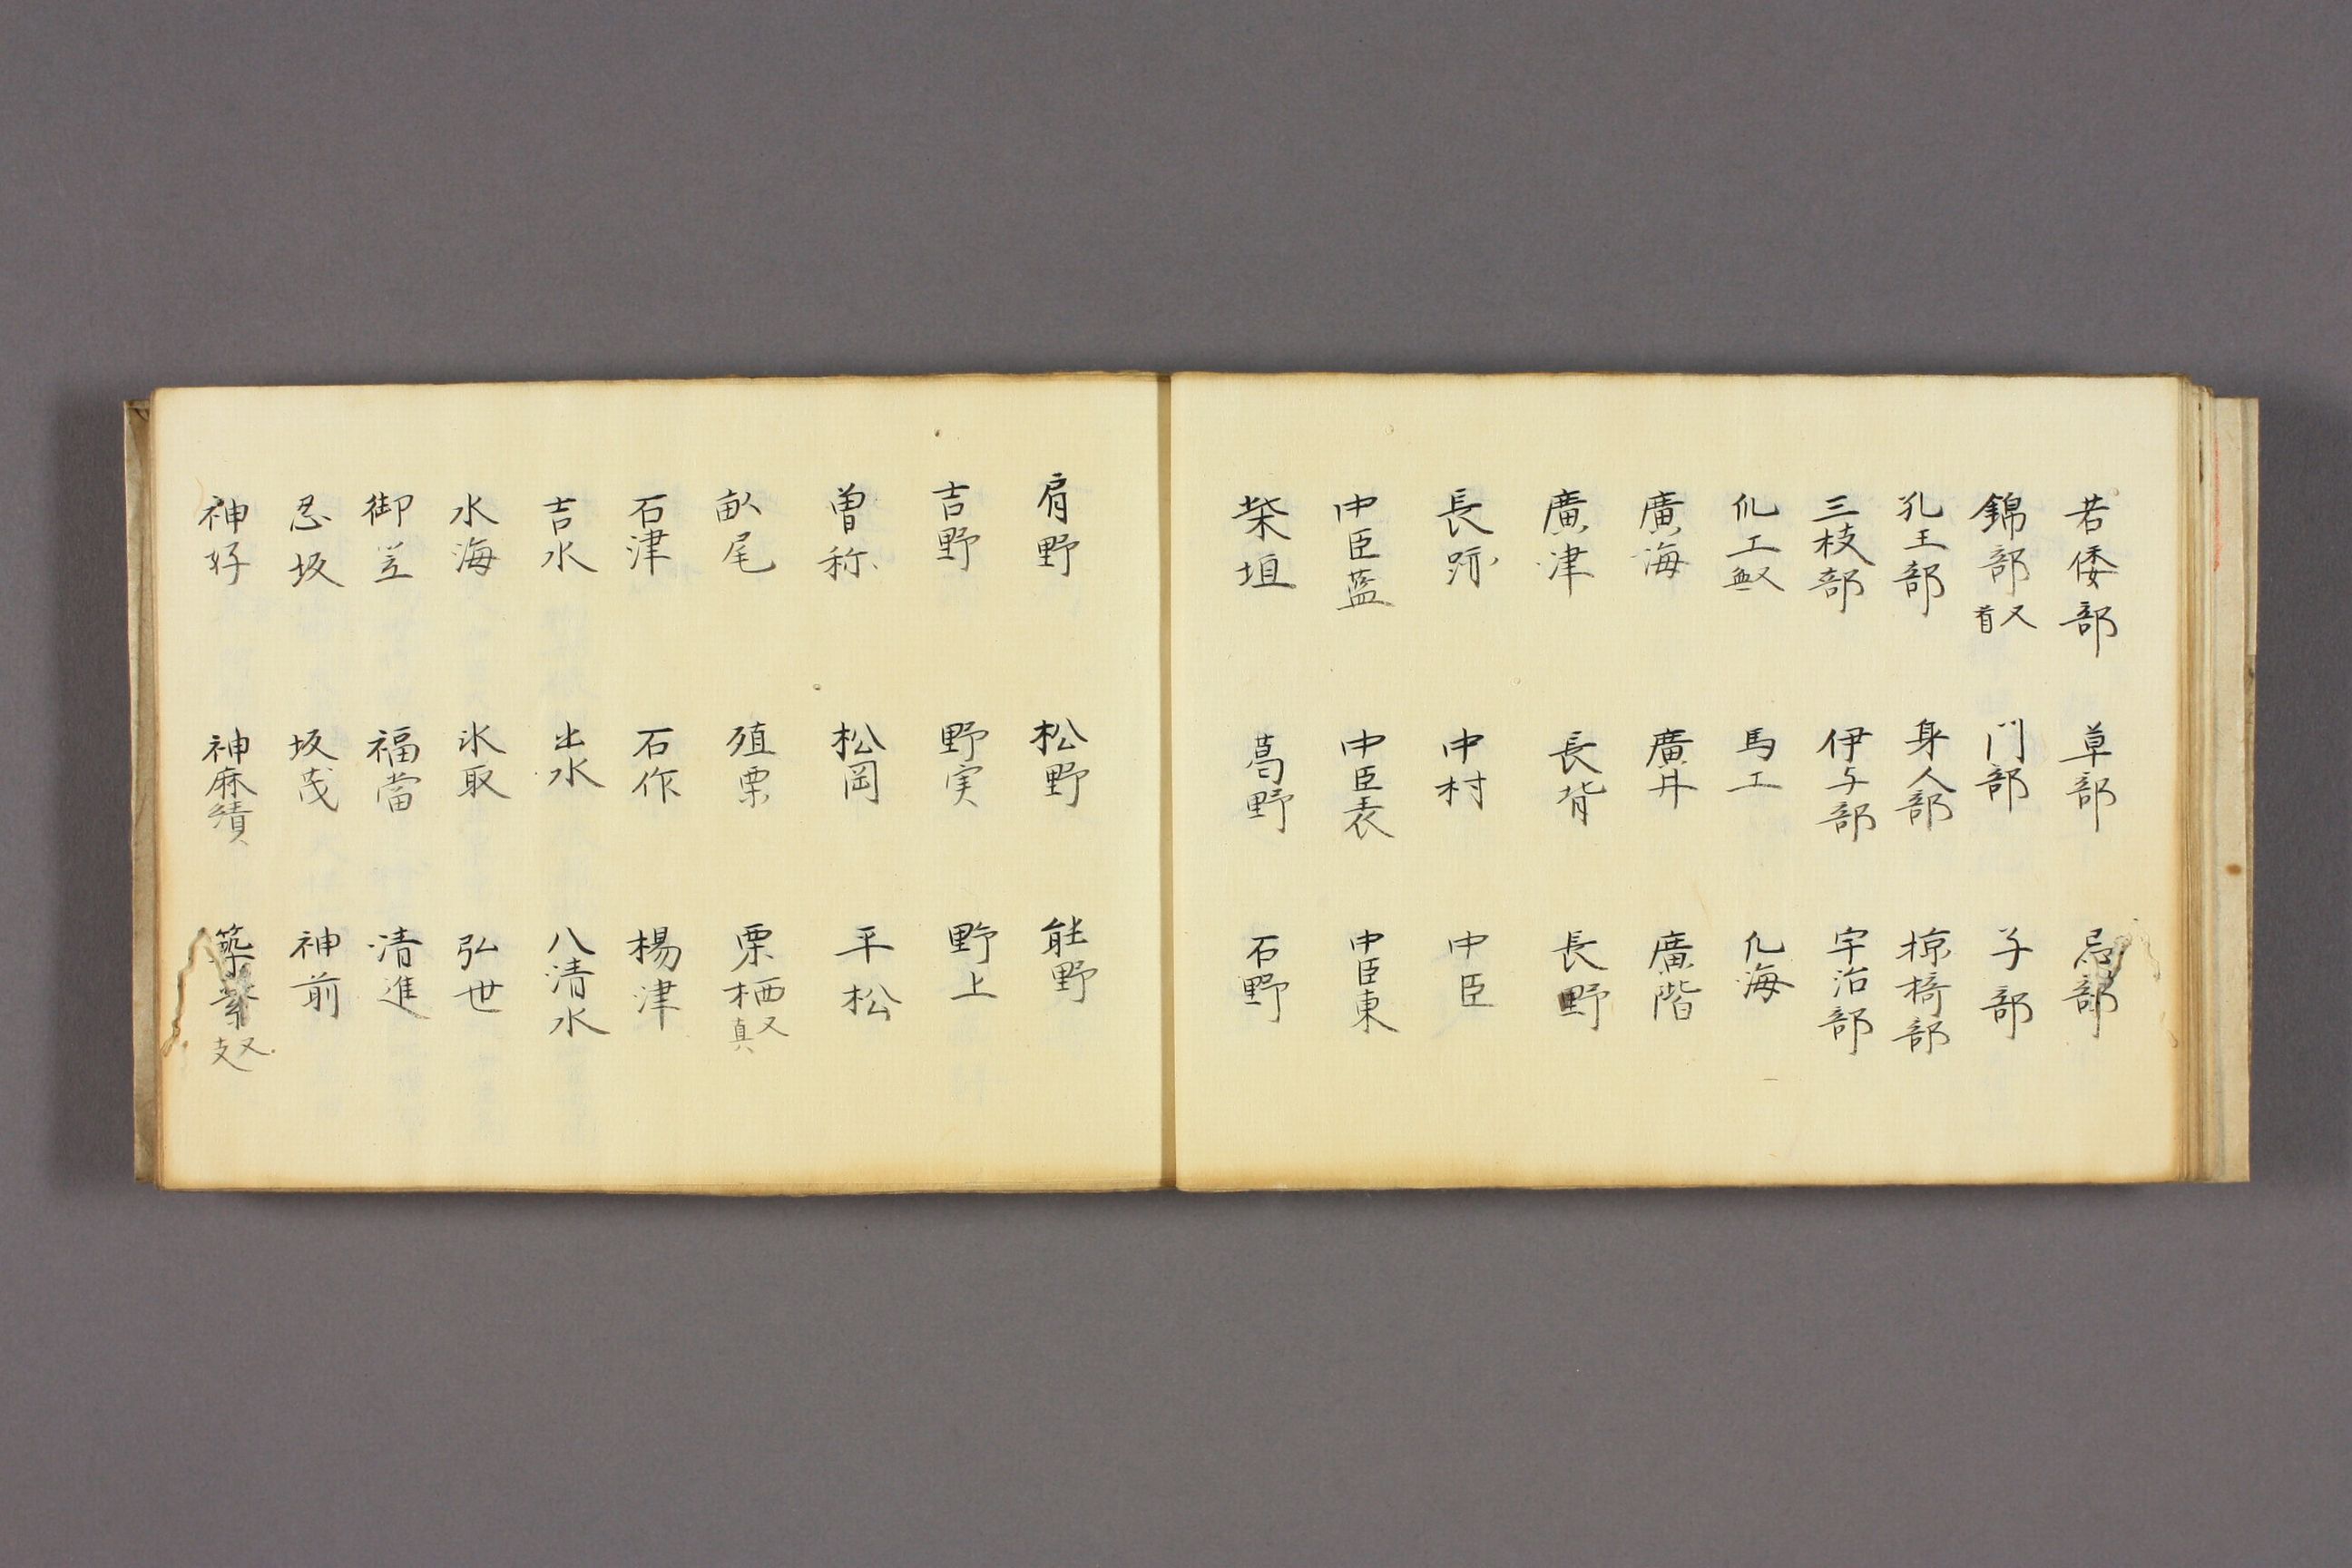 若倭部 草部 忌部
錦部 又首 门部 子部
孔王部 身人部 椋椅部
三枝部 伊与部 宇治部
凡工 馬工 凡海
廣海 廣井 廣階
廣津 長背 長野
長跡 中村 中臣
中臣藍 中臣表 中臣東
柴垣 葛野 石野
肩野 松野 能野
吉野 野実 野上
曽称 松岡 平松
畝尾 殖栗 栗栖 又真
石津 石作 楊津
吉水 出水 八清水
水海 氷取 弘世
御立 福當 清進
忍坂 坂茂 神前
神好 神麻績 築紫 又支